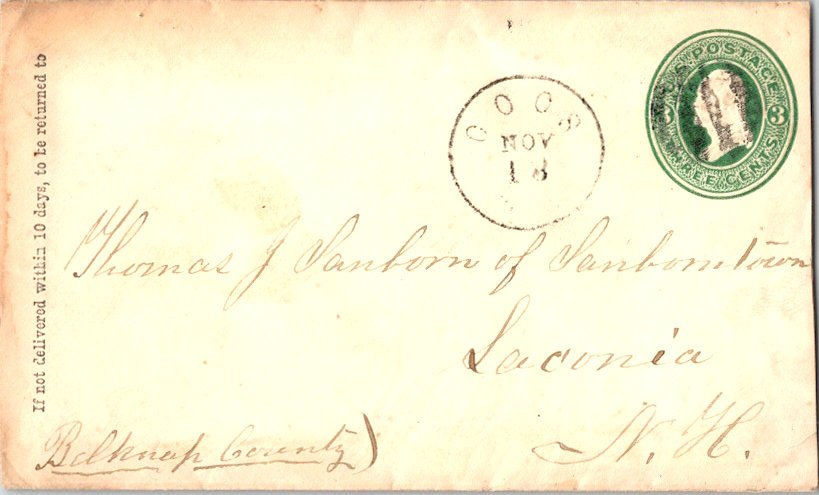 If not delivered within 10 days, to be returned to
COOS
NOV
18
U.S. POSTAGE
3 3
THREE CENTS
Thomas J Sanborn of Sanborntown
Laconia
N. H.
Belknap County)